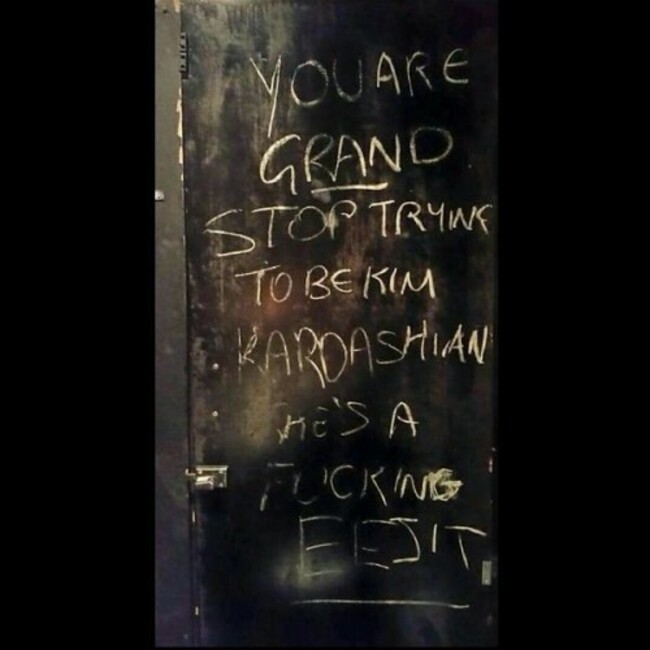 YOU ARE
GRAND
STOP TRYING
TO BE KIM
KARDASHIAN
SHE'S A
FUCKING
EEJIT